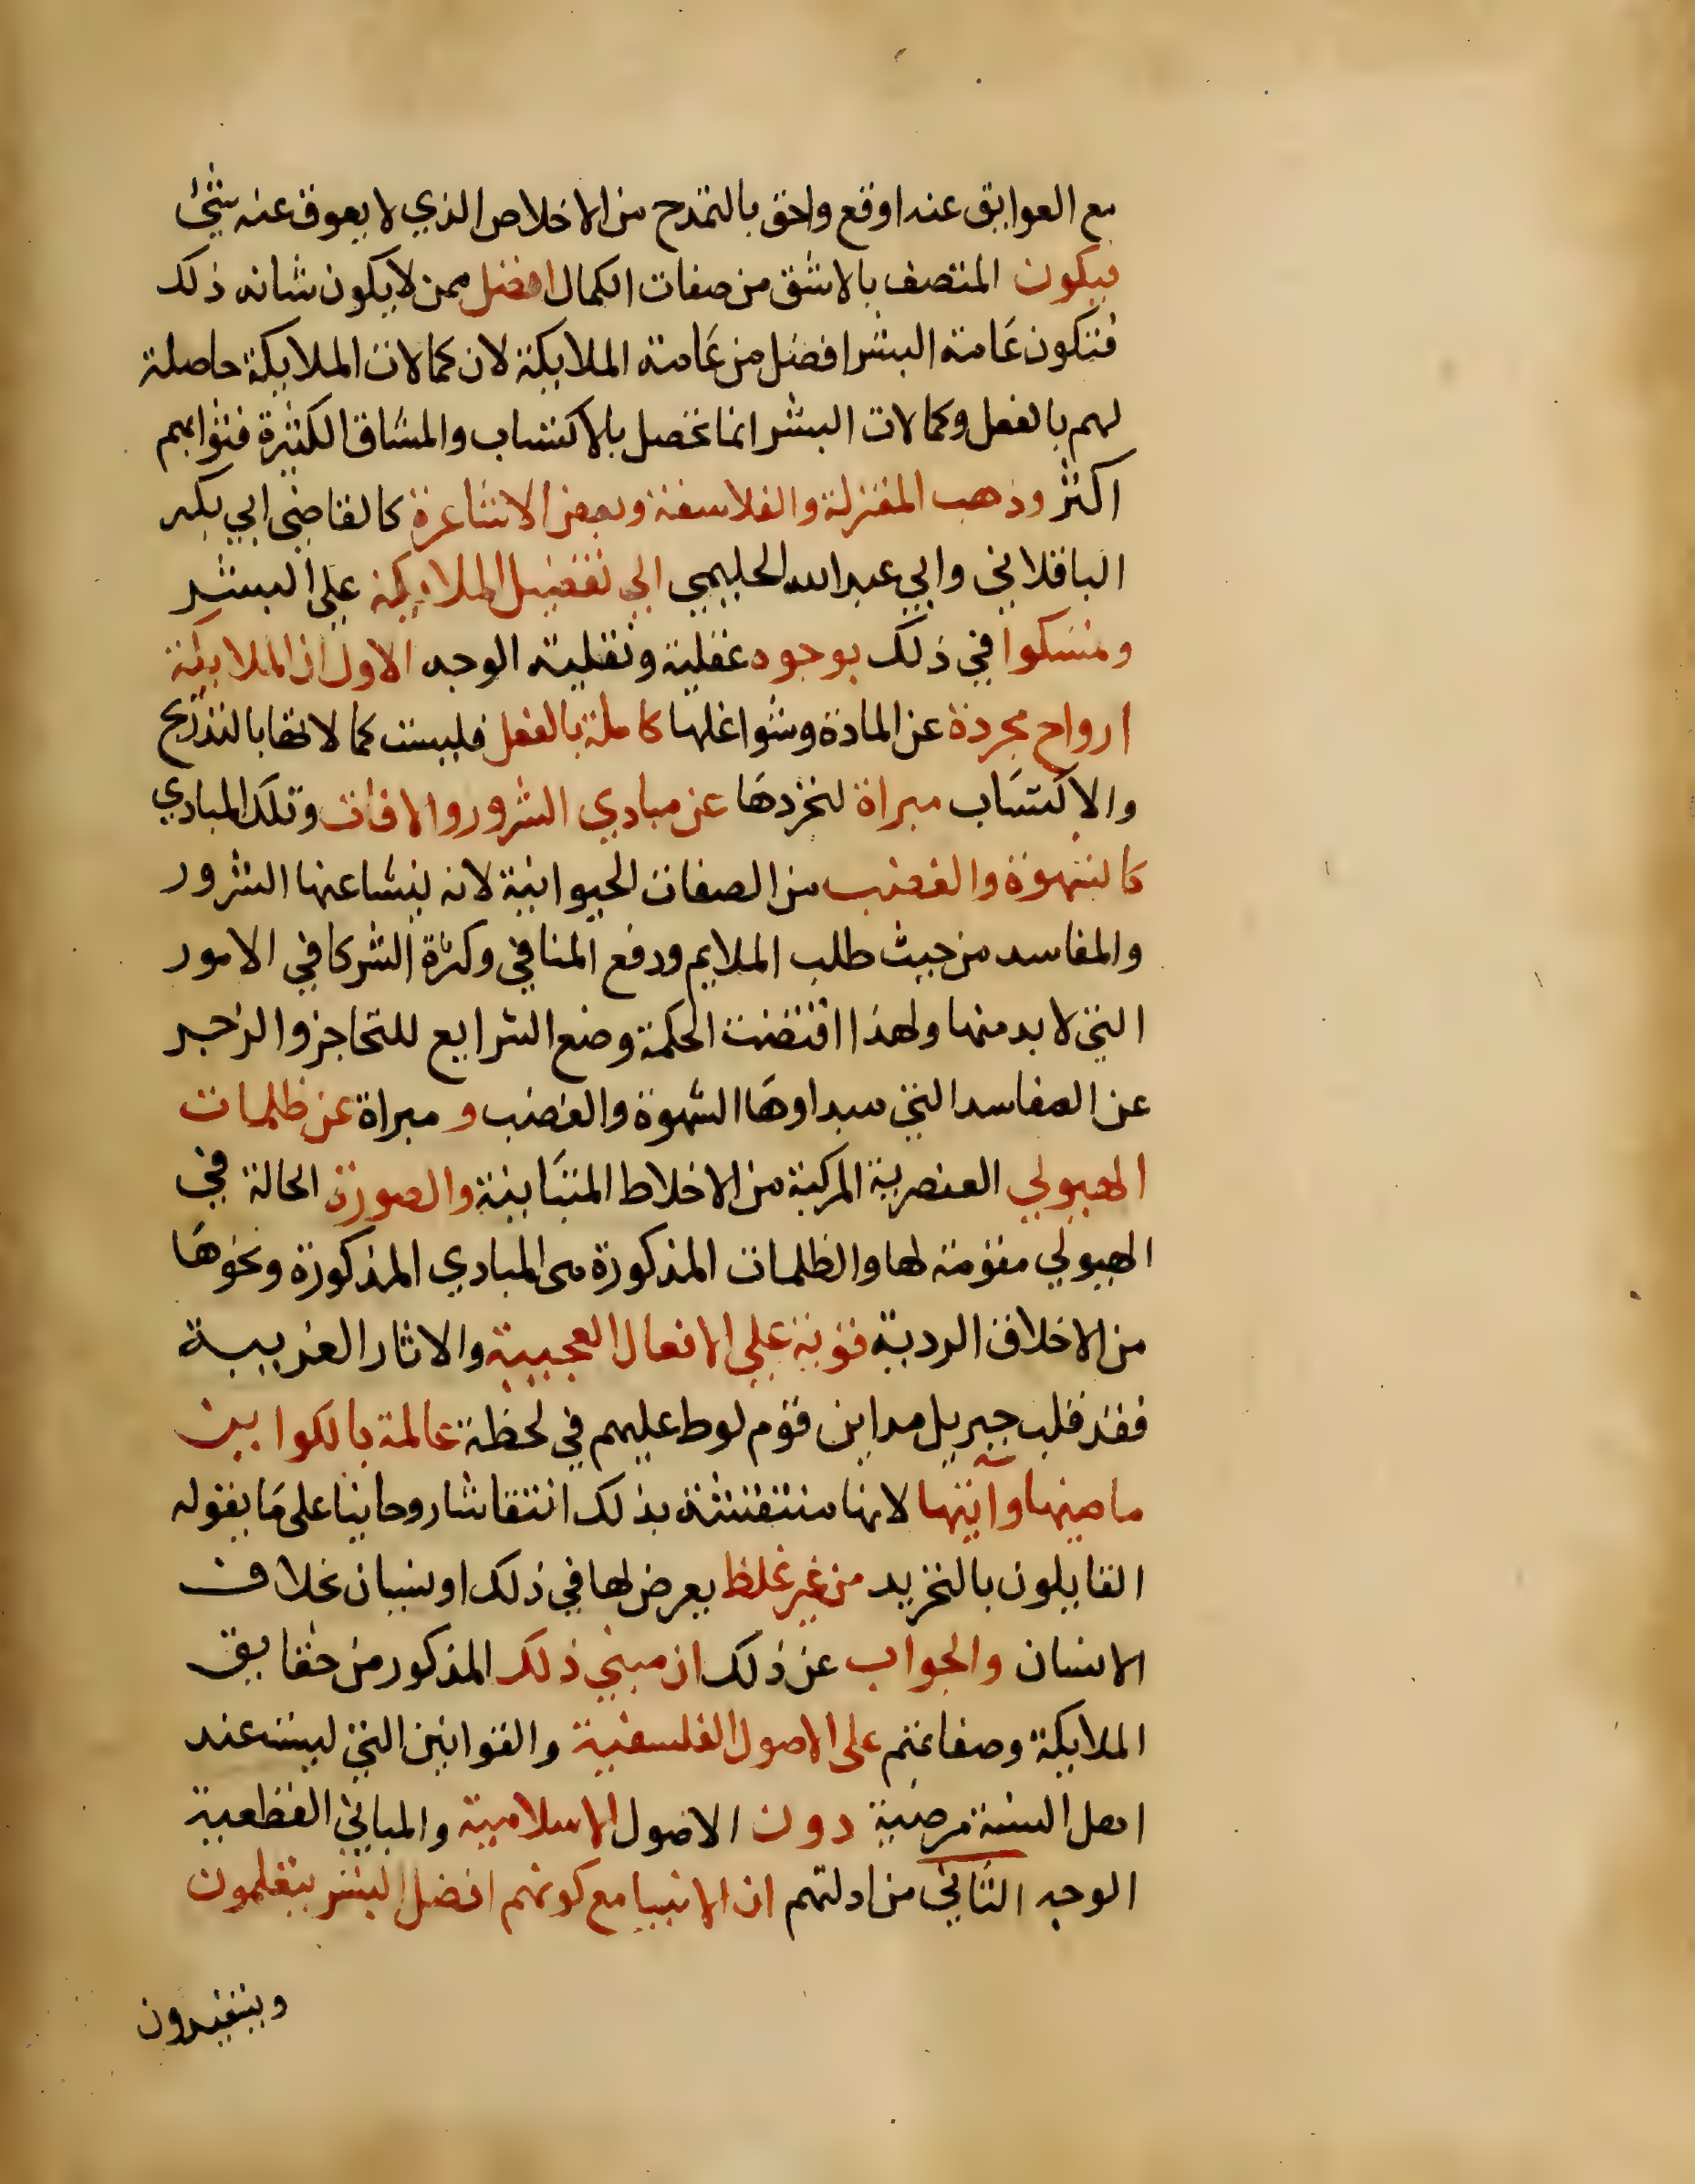 مع العوايق عنه اوقع واحق بالتمدح من الاخلاص الذي لا يعوق عنه شئ
فيكون المتصف بالاشق من صفات الكمال افضل ممن لا يكون شانه ذلك
فتكون عامة البشر افضل من عامة الملايكة لان كمالات الملايكة حاصلة
لهم بالفعل وكمالات البشر انما تحصل بالاكتساب والمشاق الكثيرة فثوابهم
اكثر وذهب المعتزلة والفلاسفة وبعض الاشاعرة كالقاضي ابي بكر
الباقلاني وابي عبد الله الحليمي الي تفضيل الملايكة علي البشر
وتمسكوا في ذلك بوجوه عقلية ونقلية الوجه الاول ان الملايكة
ارواح مجردة عن المادة وشواغلها كاملة بالفعل فليست كمالاتها بالتدريج
والاكتساب مبراة لتجردها عن مبادي الشرور والافات وتلك المبادي
كالشهوة والغضب من الصفات الحيوانية لانه ينشا عنها الشرور
والمفاسد من حيث طلب الملايم ودفع المنافي وكثرة الشركا في الامور
التي لا بد منها ولهذا اقتضت الحكمة وضع الشرايع للتحاجز والزجر
عن المفاسد التي مبداوها الشهوة والغضب و مبراة عن ظلمات
الهيولي العنصرية المركبة من الاخلاط المتباينة والصورة الحالة في
الهيولي مقومة لها والظلمات المذكورة هي المبادي المذكورة ونحوها
من الاخلاق الردية قوية علي الافعال العجيبة والاثار الغريبة
فقد قلب جبريل مداين قوم لوط عليهم في لحظة عالمة بالكواين
ماضيها وآتيها لانها منتقشة بذلك انتقاشا روحانيا على ما يقوله
القايلون بالتجريد من غير غلط يعرض لها في ذلك او نسيان بخلاف
الانسان والجواب عن ذلك ان مبني ذلك المذكور من حقايق
الملايكة وصفاتهم على الاصول الفلسفية والقوانين التي ليست عند
اهل السنة مرضية دون الاصول الاسلامية والمباني القطعية
الوجه الثاني من ادلتهم ان الانبيا مع كونهم افضل البشر يتعلمون
ويستفيدون